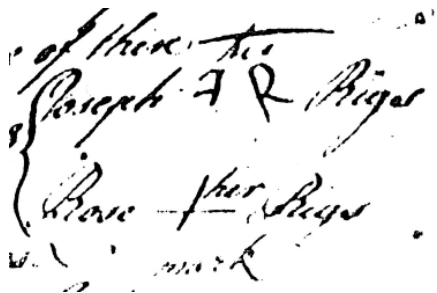 of these his
Joseph JR Rigs
Rose + her Rigs
mark